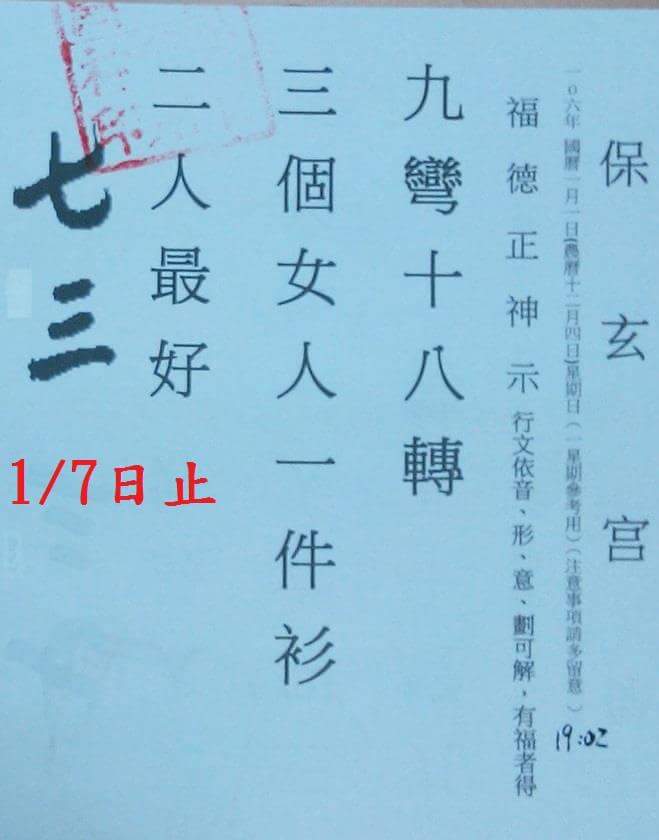 保玄宮
一o六年 國曆一月一日(農曆十二月四日)星期日(一星期參考用)(注意事項請多留意)
19:02
福德正神示 行文依音、形、意、劃可解，有福者得
九彎十八轉
三個女人一件衫
二人最好
七三
1/7日止